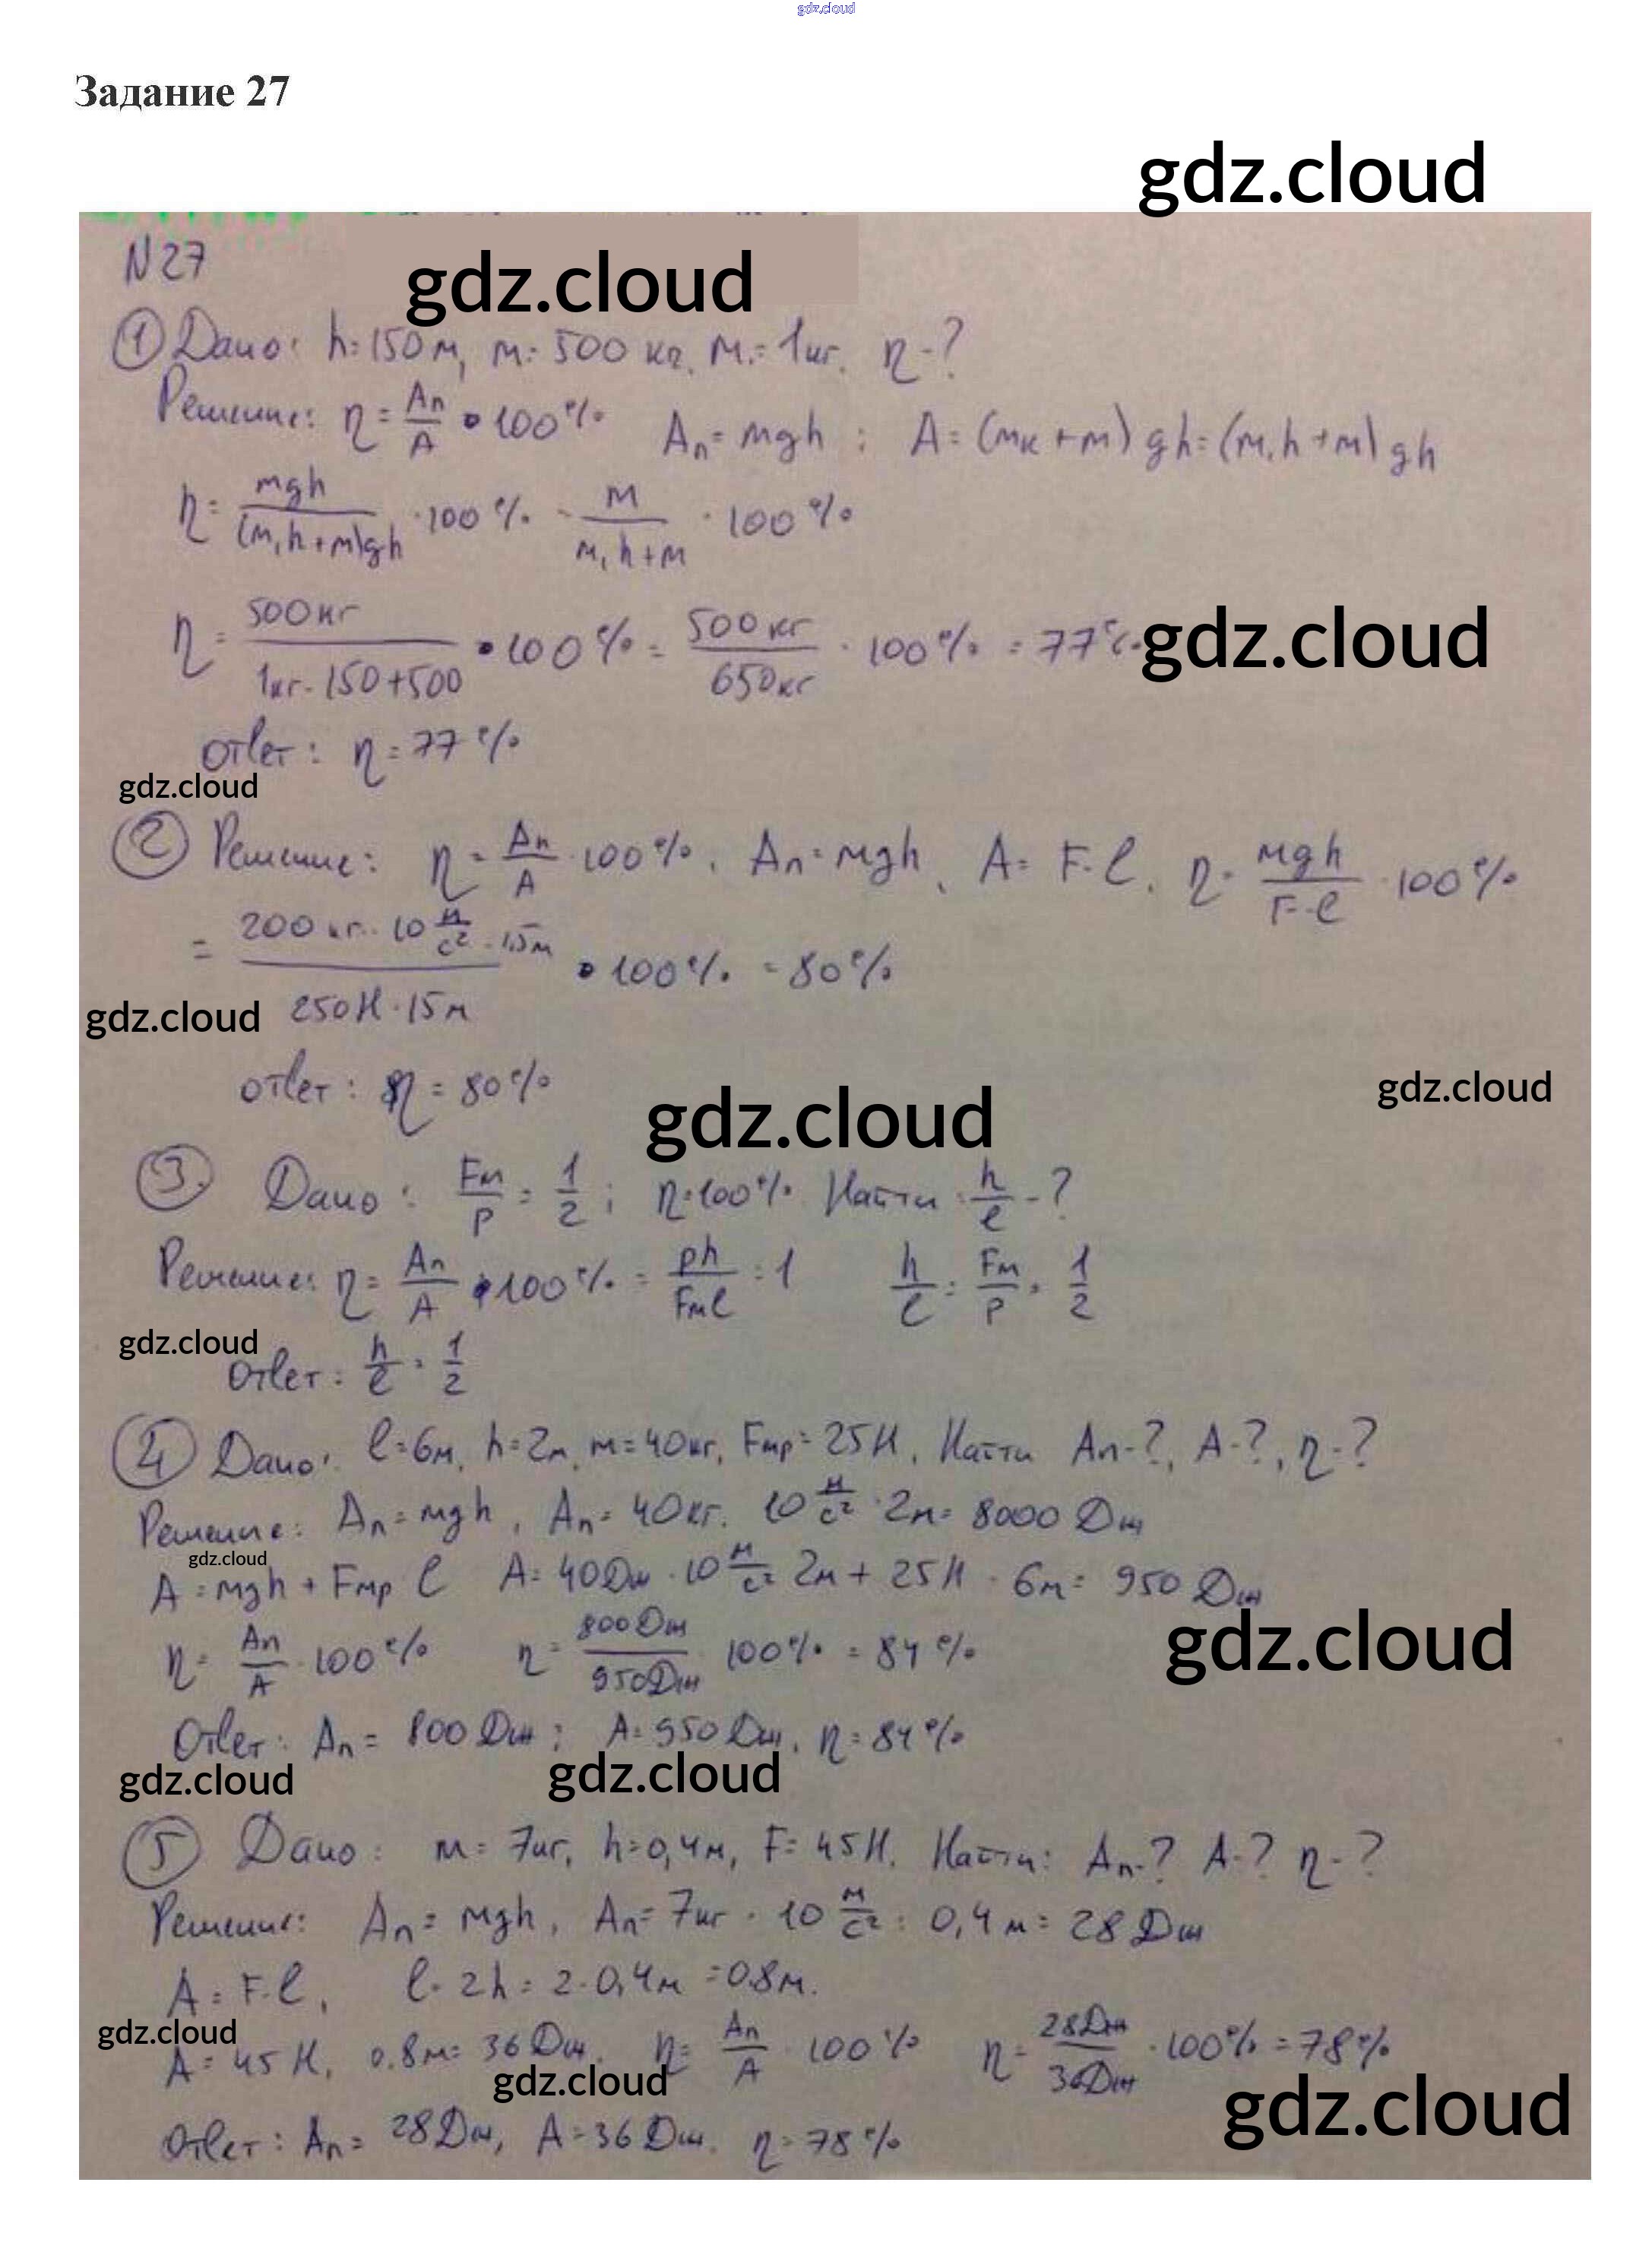 gdz.cloud
Задание 27
gdz.cloud
N27
gdz.cloud
① Дано: h=150м, m=500 кг. m₁=1кг. η-?
Решение: η = Aп/A • 100% Aп = mgh ; A = (mк+m) gh = (m₁h+m) gh
η = mgh/(m₁h+m)gh · 100% = m/m₁h+m · 100%
η = 500кг/1кг·150+500 • 100% = 500кг/650кг · 100% = 77%
gdz.cloud
ответ: η = 77%
gdz.cloud
② Решение: η = Aп/A · 100%. Aп = mgh, A = F·l. η = mgh/F·l · 100%
= 200 кг · 10 м/с² · 1,5м/250Н · 15м • 100% = 80%
gdz.cloud
ответ: η = 80%
gdz.cloud
gdz.cloud
③. Дано: Fм/p = 1/2 ; η=100%. Найти: h/l -?
Решение: η = Aп/A • 100% = ph/Fмl = 1 h/l = Fм/p = 1/2
gdz.cloud
ответ: h/l = 1/2
④ Дано: l=6м, h=2м, m=40кг, Fтр=25Н. Найти Aп-?, A-?, η-?
Решение: Aп = mgh, Aп = 40кг. 10 м/с² · 2м = 8000 Дж
gdz.cloud
A = mgh + Fтр l A = 40Дж · 10 м/с² 2м + 25Н · 6м = 950 Дж
gdz.cloud
η = Aп/A · 100% η = 800Дж/950Дж · 100% = 84%
Ответ: Aп = 800 Дж; A = 950 Дж, η = 84%
gdz.cloud
gdz.cloud
⑤ Дано: m = 7кг, h=0,4м, F= 45Н. Найти: Aп-? A-? η-?
Решение: Aп = mgh, Aп = 7кг · 10 м/с² · 0,4м = 28 Дж
A = F·l, l = 2h = 2·0,4м = 0.8м.
gdz.cloud
A = 45Н, 0.8м = 36 Дж. η = Aп/A · 100% η = 28Дж/36Дж · 100% = 78%
gdz.cloud
gdz.cloud
Ответ: Aп = 28Дж, A = 36 Дж. η = 78%